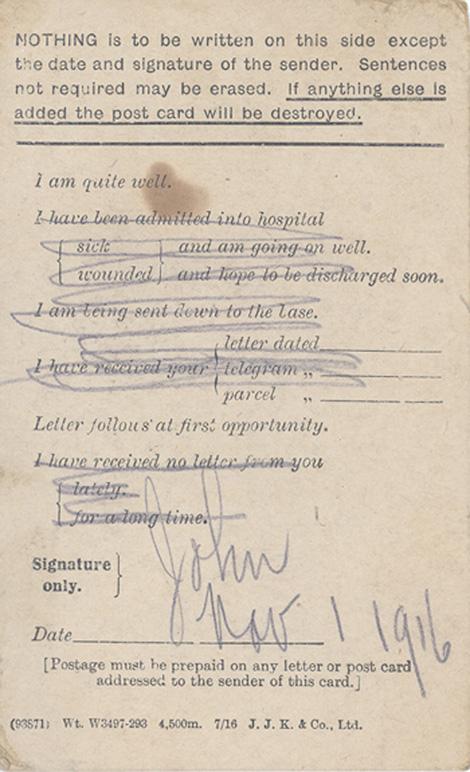 NOTHING is to be written on this side except
the date and signature of the sender. Sentences
not required may be erased. If anything else is
added the post card will be destroyed.
I am quite well.
I have been admitted into hospital
sick and am going on well.
wounded and hope to be discharged soon.
I am being sent down to the base.
letter dated
I have received your telegram „
parcel „
Letter follows at first opportunity.
I have received no letter from you
lately.
for a long time.
John
Signature
only.
Nov 1 1916
Date
[Postage must be prepaid on any letter or post card
addressed to the sender of this card.]
(93871) Wt. W3497-293 4,500m. 7/16 J. J. K. & Co., Ltd.